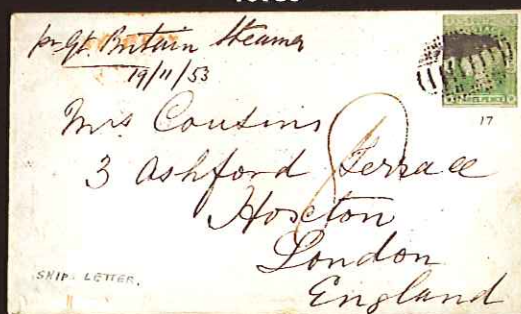 pr Gt. Britain Steamer
19/11/53
Mrs Cousins
3 Ashford Terrace
Hoxton
London
England
17
8
SHIP LETTER.